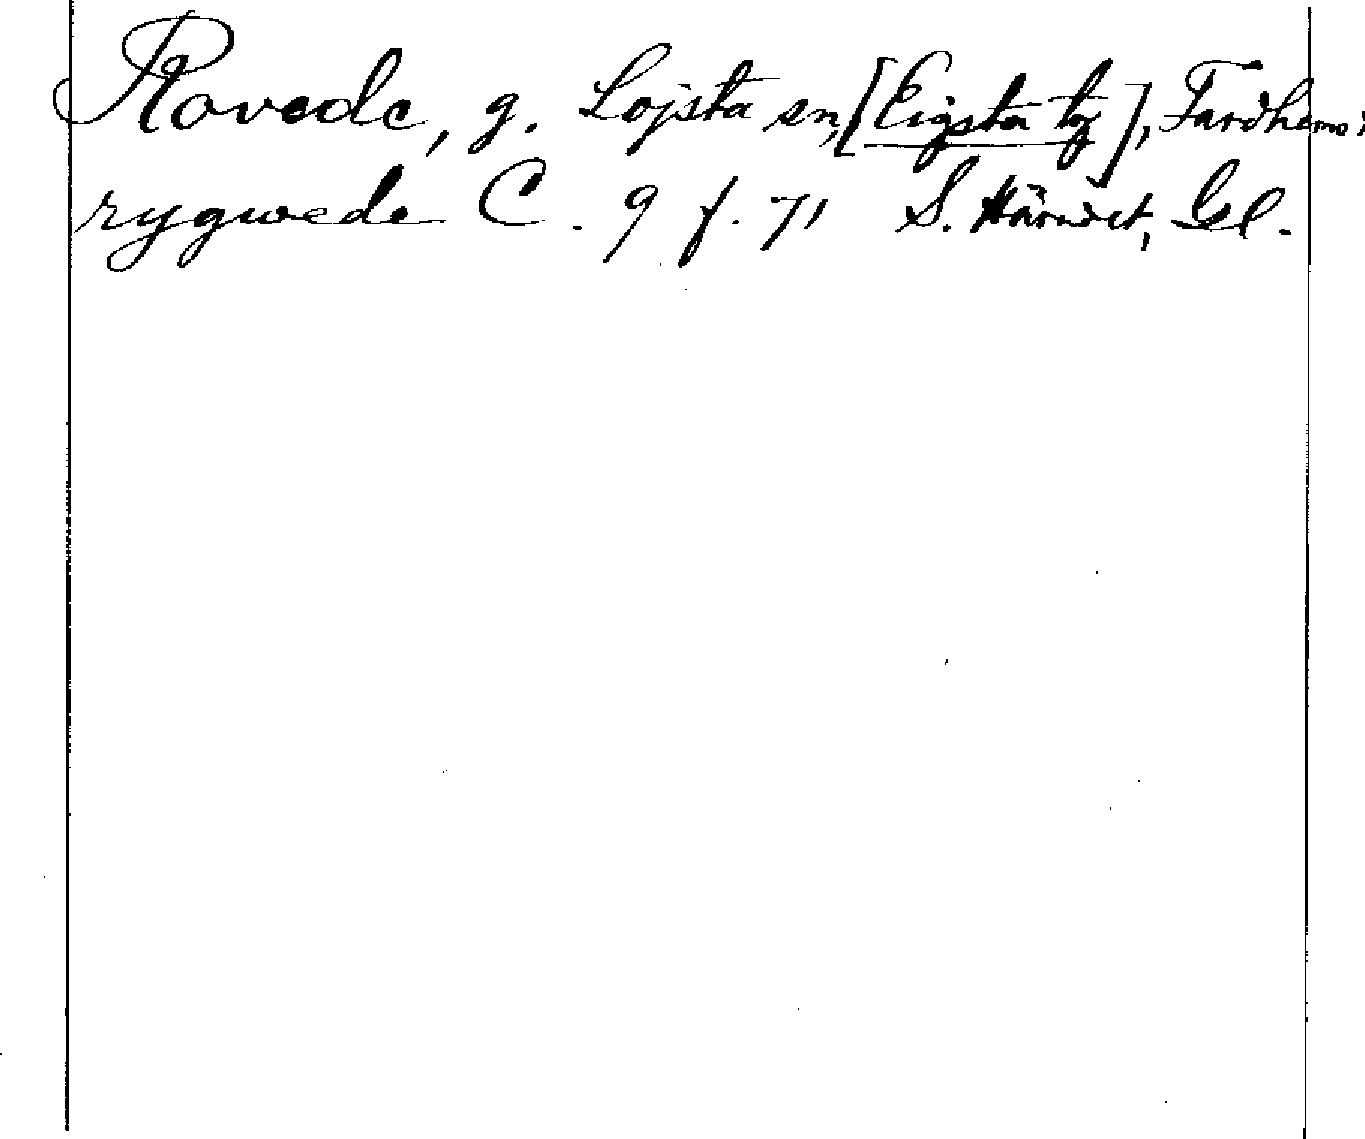 Rovede, g. Lojsta sn, [Eigsta tg], Fardhems
rygwede C. 9 f. 71 S. Häradet, Gl.